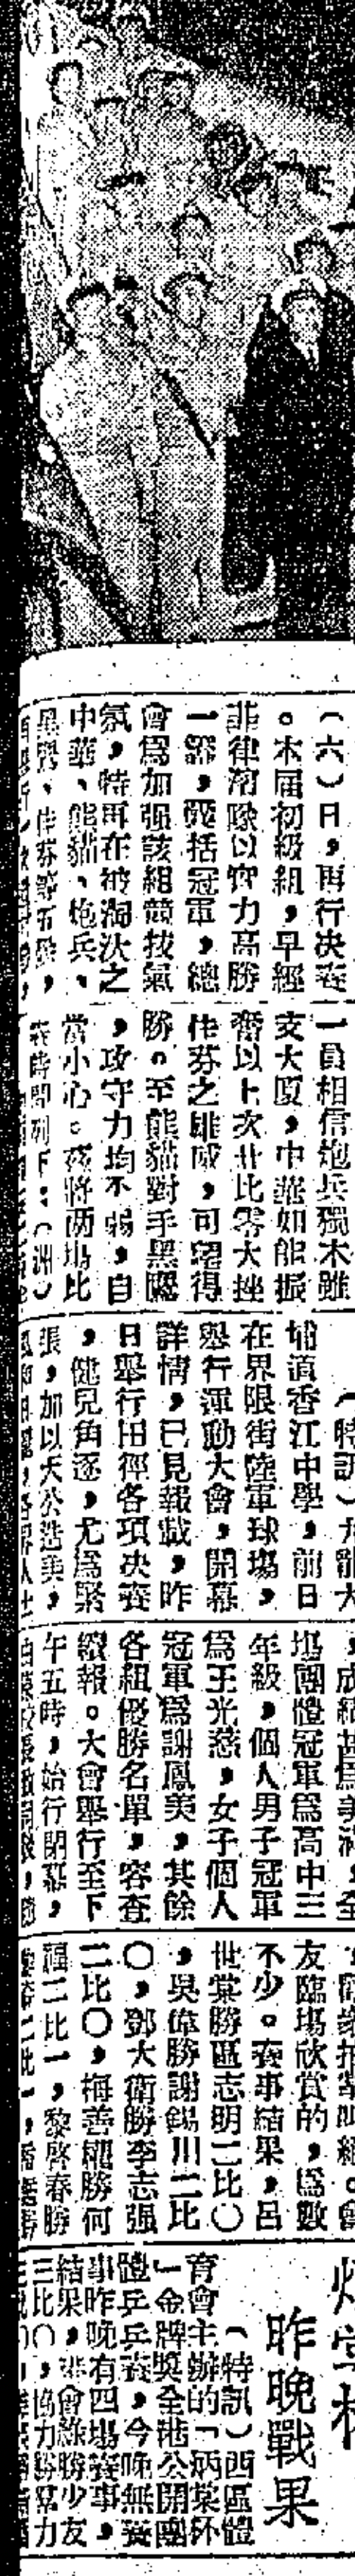 （六）日，再行决賽
。本届初級組，早經
菲律濱隊以實力高勝
一籌，囊括冠軍，總
會爲加强該組競技氣
氛，特再在被淘汰之
中華、熊貓、炮兵、
黑鷹、佳芬等五隊，
一員相信炮兵獨木難
支大厦，中華如能振
奮以上次廿比零大挫
佳芬之雄威，可望得
勝。至熊貓對手黑鷹
，攻守力均不弱，自
當小心。茲將两塲比
賽時間列下：（洲）
（時訊）九龍大
埔道香江中學，前日
在界限街陸軍球塲，
舉行運動大會，開幕
詳情，已見報載，昨
日舉行田徑各項决賽
，健兒角逐，尤爲緊
張，加以天公造美，
，成績甚爲美滿，全
塲團體冠軍爲高中三
年級，個人男子冠軍
爲王光慈，女子個人
冠軍爲謝鳳美，其餘
各組優勝名單，容查
續報。大會舉行至下
午五時，始行閉幕，
友臨塲欣賞的，爲數
不少。賽事結果，呂
世棠勝區志明二比〇
，吳偉勝謝錫川二比
〇，鄧大衛勝李志强
二比〇，梅善櫂勝何
福二比一，黎啓春勝
昨晚戰果
（特訊）西區體
育會主辦的「炳棠杯
」金牌獎全港公開團
體乒乓賽，今晚無賽
事昨晚有四塲賽事，
結果，華會綠勝少友
三比〇，協力勝常力